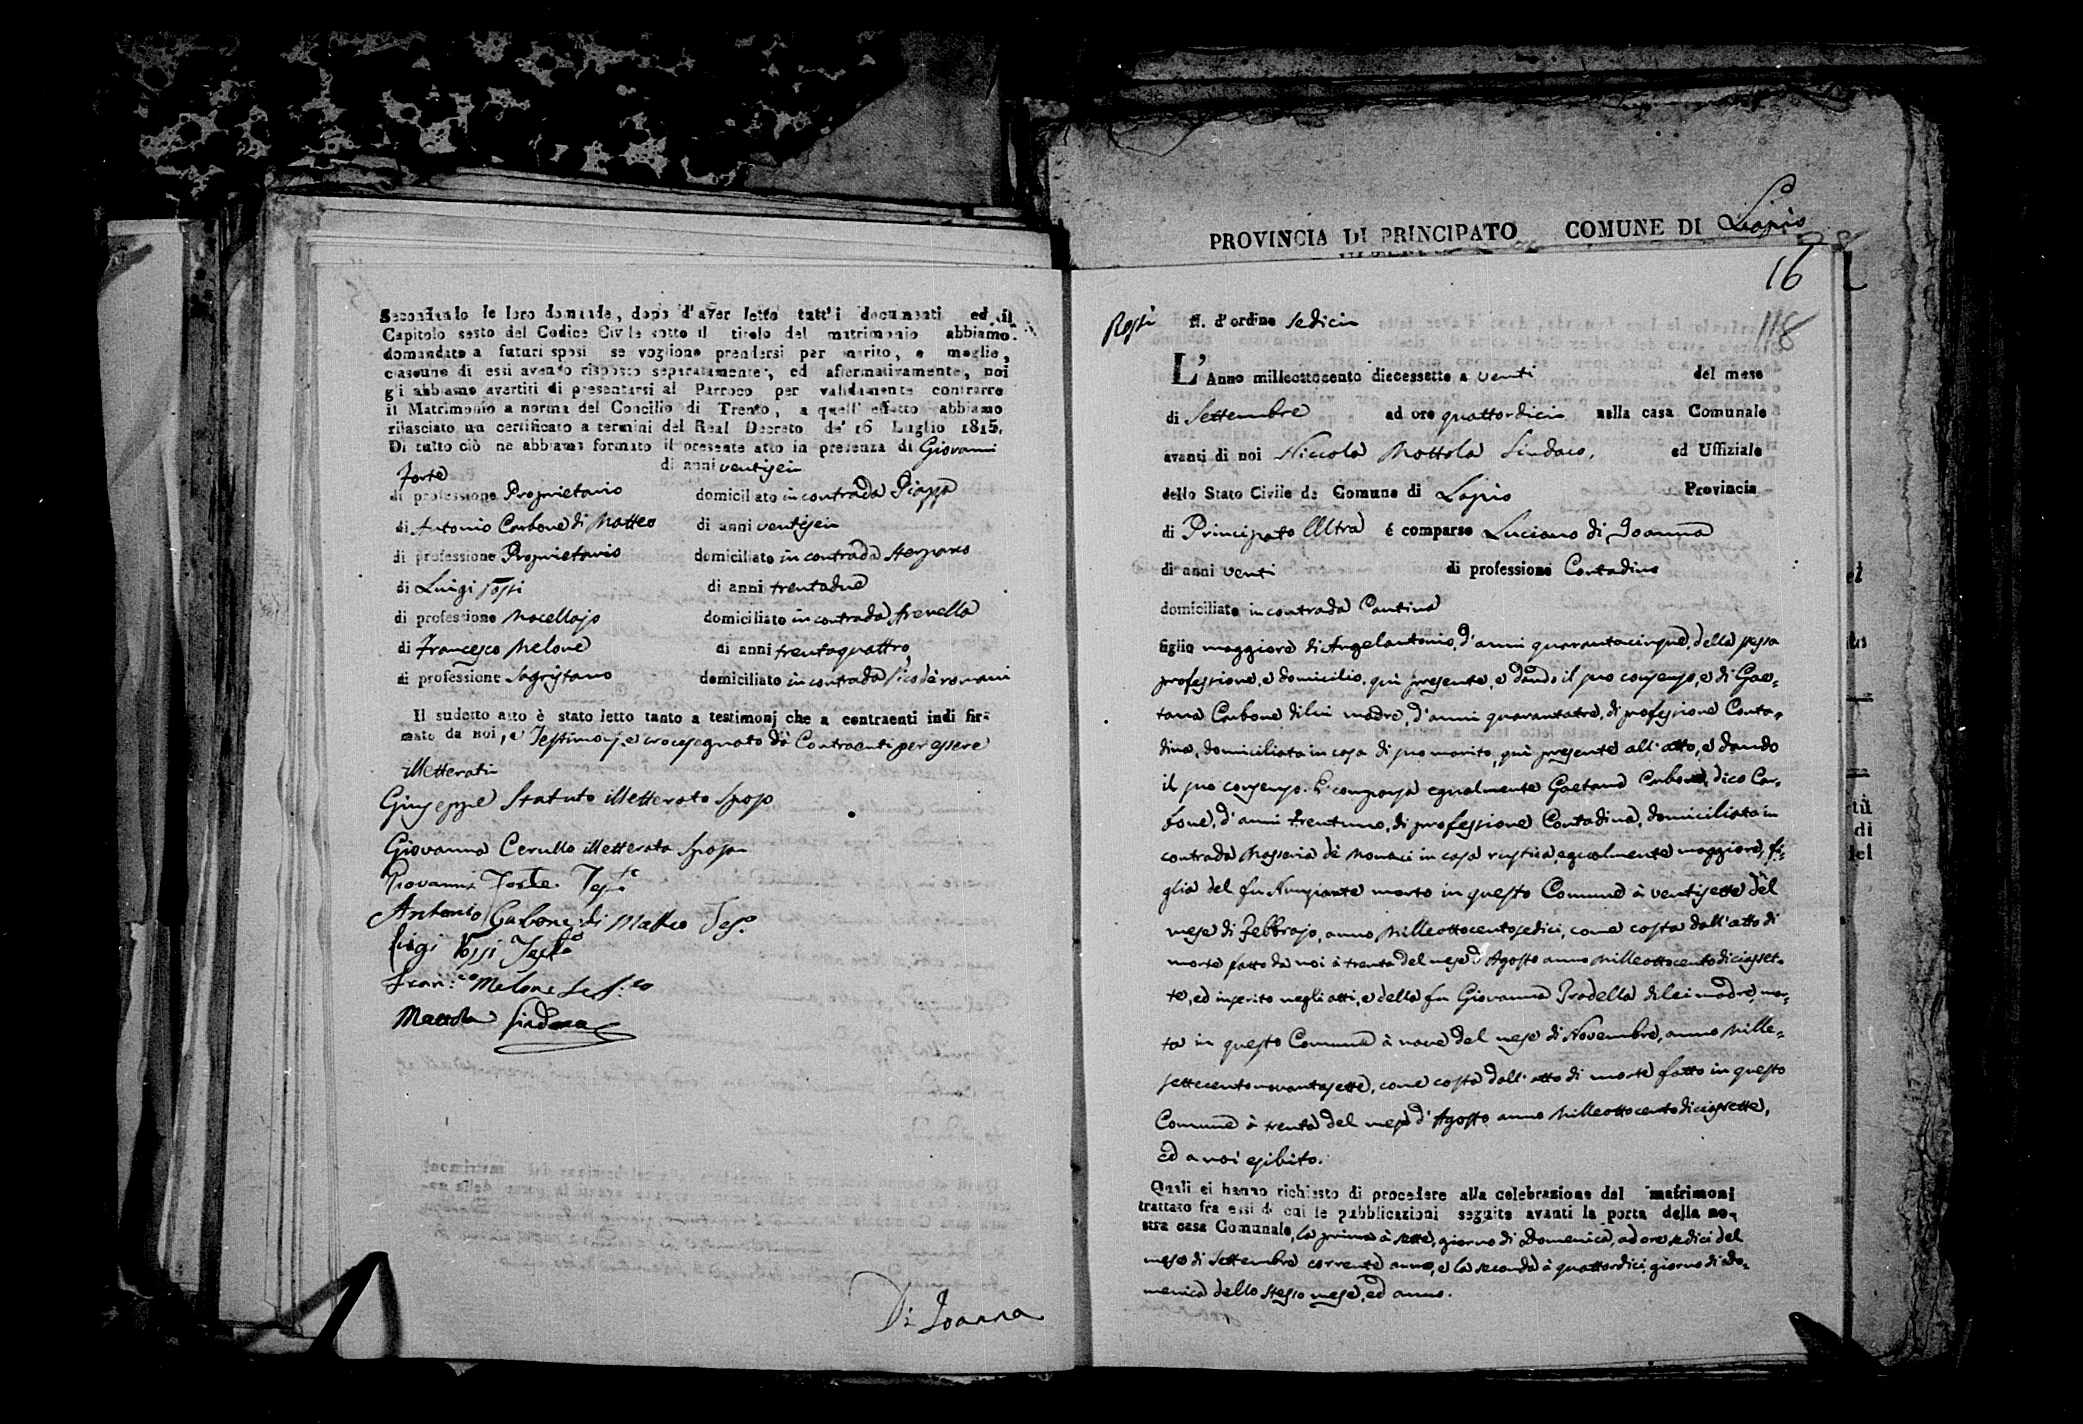 Secondando le loro domande, dopo d'aver letto tutt'i documenti ed il
Capitolo sesto del Codice Civile sotto il titolo del matrimonio abbiamo
domandato a futuri sposi se vogliono prendersi per marito, e moglie,
ciascuno di essi avendo risposto separatamente, ed affermativamente, noi
gli abbiamo avertiti di presentarsi al Parroco per validamente contrarre
il Matrimonio a norma del Concilio di Trento, a quell' effetto abbiamo
rilasciato un certificato a termini del Real Decreto de' 16 Luglio 1815.
Di tutto ciò ne abbiamo formato il presente atto in presenza di Giovanni
Forte di anni ventisei
di professione Proprietario domiciliato in contrada Piazza
di Antonio Carbone di Matteo di anni ventisei
di professione Proprietario domiciliato in contrada
di Luigi Rossi di anni trentadue
di professione Macellajo domiciliato in contrada
di Francesco Melone di anni trentaquattro
di professione Sagristano domiciliato in contrada
Il sudetto atto è stato letto tanto a testimonj che a contraenti indi fir-
mato da noi, e Testimonj, e crocesegnato da Contraenti per essere
illetterati
Giuseppe Statuto illetterato Sposo
Giovanna Cerullo illetterata Sposa
Giovanni Forte
Antonio Carbone di Matteo Tes.o
Luigi Rossi
Melone
Mottola Sindaco
Di Joanna
PROVINCIA DI PRINCIPATO COMUNE DI Lapio
16
118
Rossi N. d'ordine Sedici
L'Anno milleottocento diecessette a venti del mese
di Settembre ad ore quattordici nella casa Comunale
avanti di noi Niccola Mottola Sindaco, ed Uffiziale
dello Stato Civile de Comune di Lapio Provincia
di Principato Ultra é comparso Luciano di Joanna
di anni venti di professione Contadino
domiciliato in contrada Cantina
figlio maggiore di Angelantonio, d'anni quarantacinque, della stessa
professione, e domicilio, quì presente, e dando il suo consenso, e di Gae-
tana Carbone di lui madre, d'anni quarantatre, di professione Conta-
dina, domiciliata in casa di suo marito, quì presente all'atto, e dando
il suo consenso. E comparsa egualmente Gaetana Carbone, dico Car-
bone, d'anni trentuno, di professione Contadina, domiciliata in
contrada Masseria de Monaci in casa rustica, egualmente maggiore, fi-
glia del fu Nunziante morto in questo Comune à ventisette del
mese di Febbrajo, anno Milleottocentosedici, come costa dall'atto di
morte fatto da noi à trenta del mese d'Agosto anno Milleottocentodiciasset-
te, ed inserito negli atti, e della fu Giovanna Pradella di lei madre, mor-
ta in questo Comune à nove del mese di Novembre, anno Mille-
settecentonovantasette, come costa dall'atto di morte fatto in questo
Comune à trenta del mese d'Agosto anno Milleottocentodiciassette,
ed a noi esibito.
Quali ci hanno richiesto di procedere alla celebrazione del matrimoni
trattato fra essi di cui le pubblicazioni seguite avanti la porta della no-
stra casa Comunale, la prima à sette, giorno di Domenica, ad ore sedici del
mese di Settembre corrente anno, e la seconda à quattordici, giorno di Do-
menica dello stesso mese, ed anno.